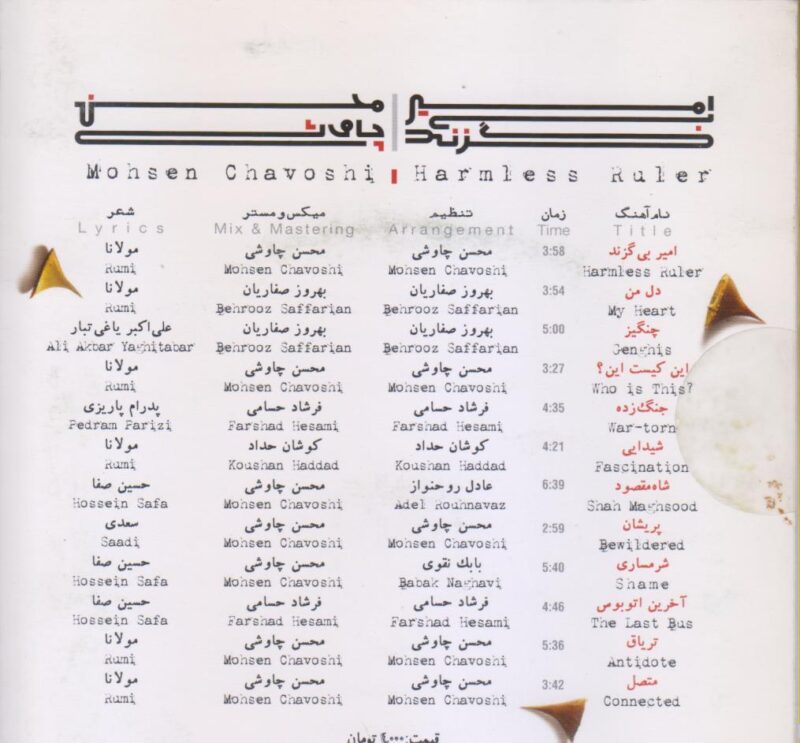 امیر بی گزند محسن چاوشی
Mohsen Chavoshi Harmless Ruler
نام آهنگ زمان تنظیم میکس و مستر شعر
Lyrics Mix & Mastering Arrangement Time Title
امیر بی گزند 3:58 محسن چاوشی محسن چاوشی مولانا
Rumi Mohsen Chavoshi Mohsen Chavoshi Harmless Ruler
دل من 3:54 بهروز صفاریان بهروز صفاریان مولانا
Rumi Behrooz Saffarian Behrooz Saffarian My Heart
چنگیز 5:00 بهروز صفاریان بهروز صفاریان علی اکبر یاغی تبار
Ali Akbar Yaghitabar Behrooz Saffarian Behrooz Saffarian Genghis
این کیست این؟ 3:27 محسن چاوشی محسن چاوشی مولانا
Rumi Mohsen Chavoshi Mohsen Chavoshi Who is This?
جنگ‌زده 4:35 فرشاد حسامی فرشاد حسامی پدرام پاریزی
Pedram Parizi Farshad Hesami Farshad Hesami War-torn
شیدایی 4:21 کوشان حداد کوشان حداد مولانا
Rumi Koushan Haddad Koushan Haddad Fascination
شاه‌مقصود 6:39 عادل روحنواز محسن چاوشی حسین صفا
Hossein Safa Mohsen Chavoshi Adel Rouhnavaz Shah Maghsood
پریشان 2:59 محسن چاوشی محسن چاوشی سعدی
Saadi Mohsen Chavoshi Mohsen Chavoshi Bewildered
شرمساری 5:40 بابک نقوی محسن چاوشی حسین صفا
Hossein Safa Mohsen Chavoshi Babak Naghavi Shame
آخرین اتوبوس 4:46 فرشاد حسامی فرشاد حسامی حسین صفا
Hossein Safa Farshad Hesami Farshad Hesami The Last Bus
تریاق 5:36 محسن چاوشی محسن چاوشی مولانا
Rumi Mohsen Chavoshi Mohsen Chavoshi Antidote
متصل 3:42 محسن چاوشی محسن چاوشی مولانا
Rumi Mohsen Chavoshi Mohsen Chavoshi Connected
قیمت: تومان